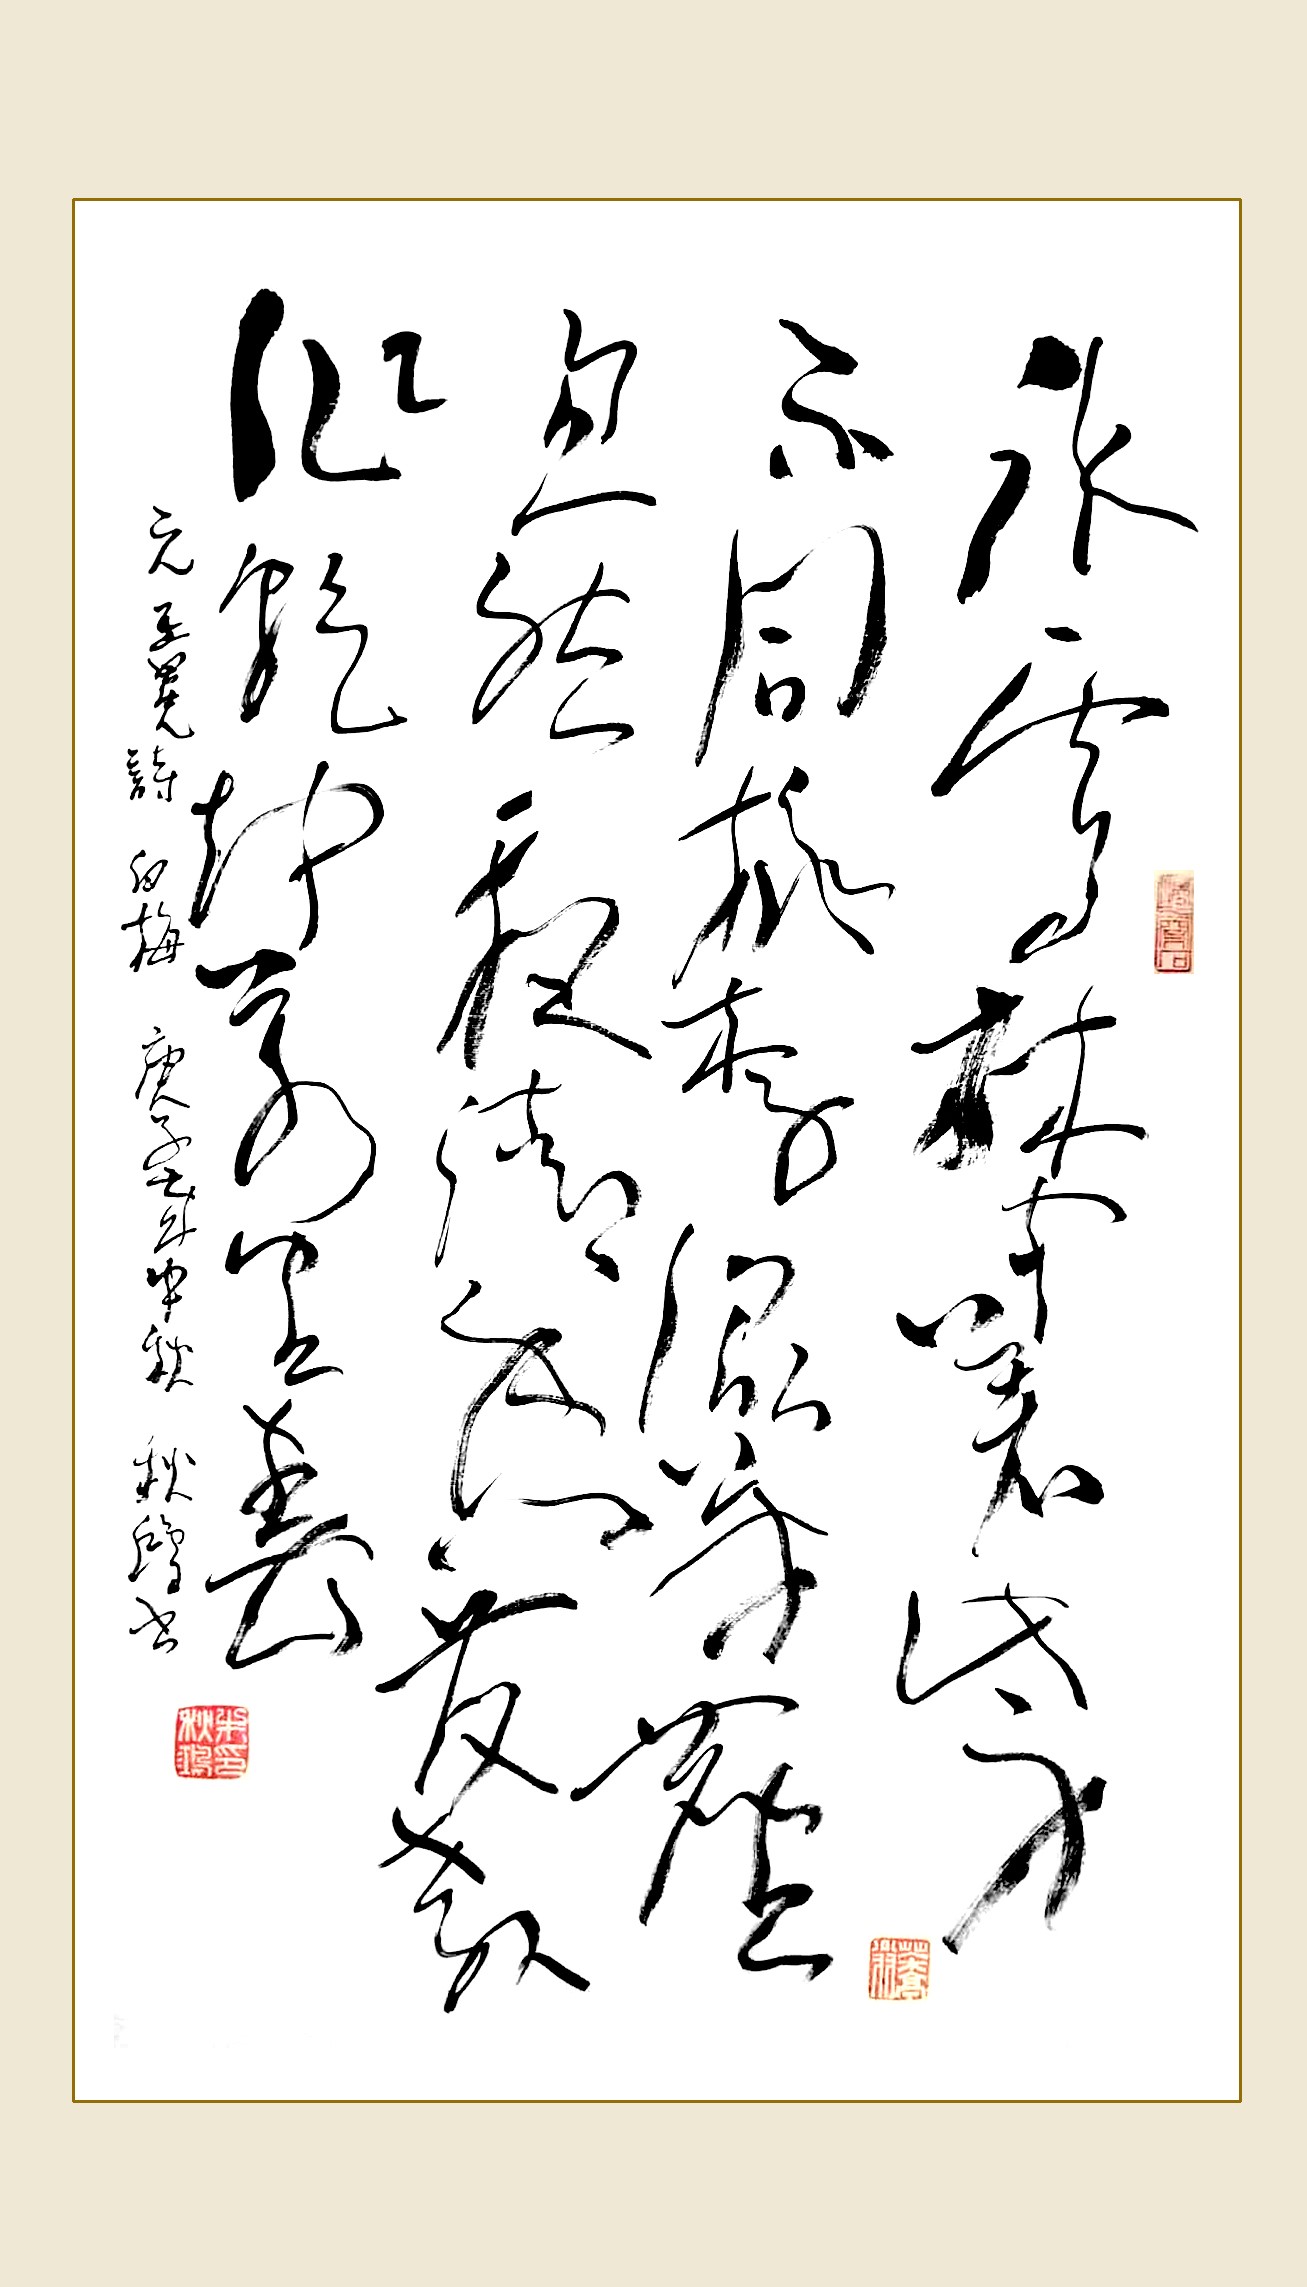 冰雪林中著此身
不同桃李混芳塵
忽然一夜清香發散
作乾坤萬里春
元王冕詩 白梅 庚子年中秋 秋鴻書